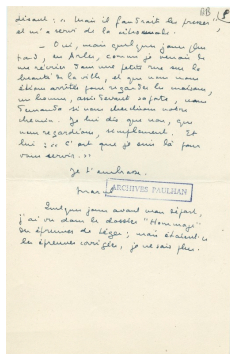 disant : « Mais il faudrait les presser »,
et m'a servi de la
— Oui, mais quelques jours plus
tard, en Arles, comme je venais de
me récrier dans une petite rue sur la
beauté de la ville, et que nous nous
étions arrêtés pour regarder les maisons,
un homme, assis devant sa porte, nous
demanda si nous cherchions notre
chemin. Je lui dis que non, que
nous regardions, simplement. Et
lui : « C'est que je suis là pour
vous servir. »
Je t'embrasse.
ARCHIVES PAULHAN
Quelques jours avant mon départ,
j'ai vu dans le dossier "Hommage"
des épreuves de Léger ; mais étaient-ce
les épreuves corrigées, je ne sais plus.